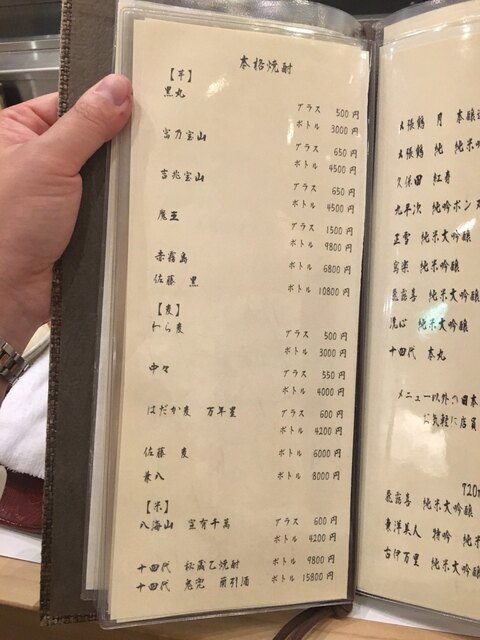 本格焼酎
【芋】
黒丸
グラス 500円
ボトル 3000円
富乃宝山
グラス 650円
ボトル 4500円
吉兆宝山
グラス 650円
ボトル 4500円
魔王
グラス 1500円
ボトル 9800円
赤霧島 ボトル 6800円
佐藤 黒 ボトル 10800円
【麦】
わら麦 グラス 500円
ボトル 3000円
中々 グラス 550円
ボトル 4000円
はだか麦 万年星 グラス 600円
ボトル 4200円
佐藤 麦 ボトル 6000円
兼八 ボトル 8000円
【米】
八海山 宜有千萬 グラス 600円
ボトル 4200円
十四代 秘蔵乙焼酎 ボトル 9800円
十四代 鬼兜 蘭引酒 ボトル 15800円
〆張鶴 月 本醸造
〆張鶴 純 純米吟
久保田 紅寿
九平次 純吟ボンヌ
正雪 純米大吟醸
寫楽 純米吟醸
飛露喜 純米大吟醸
洗心 純米大吟醸
十四代 本丸
メニュー以外の日本
お気軽に店員
720m
飛露喜 純米大吟醸
東洋美人 特吟 純米
古伊万里 純米大吟醸